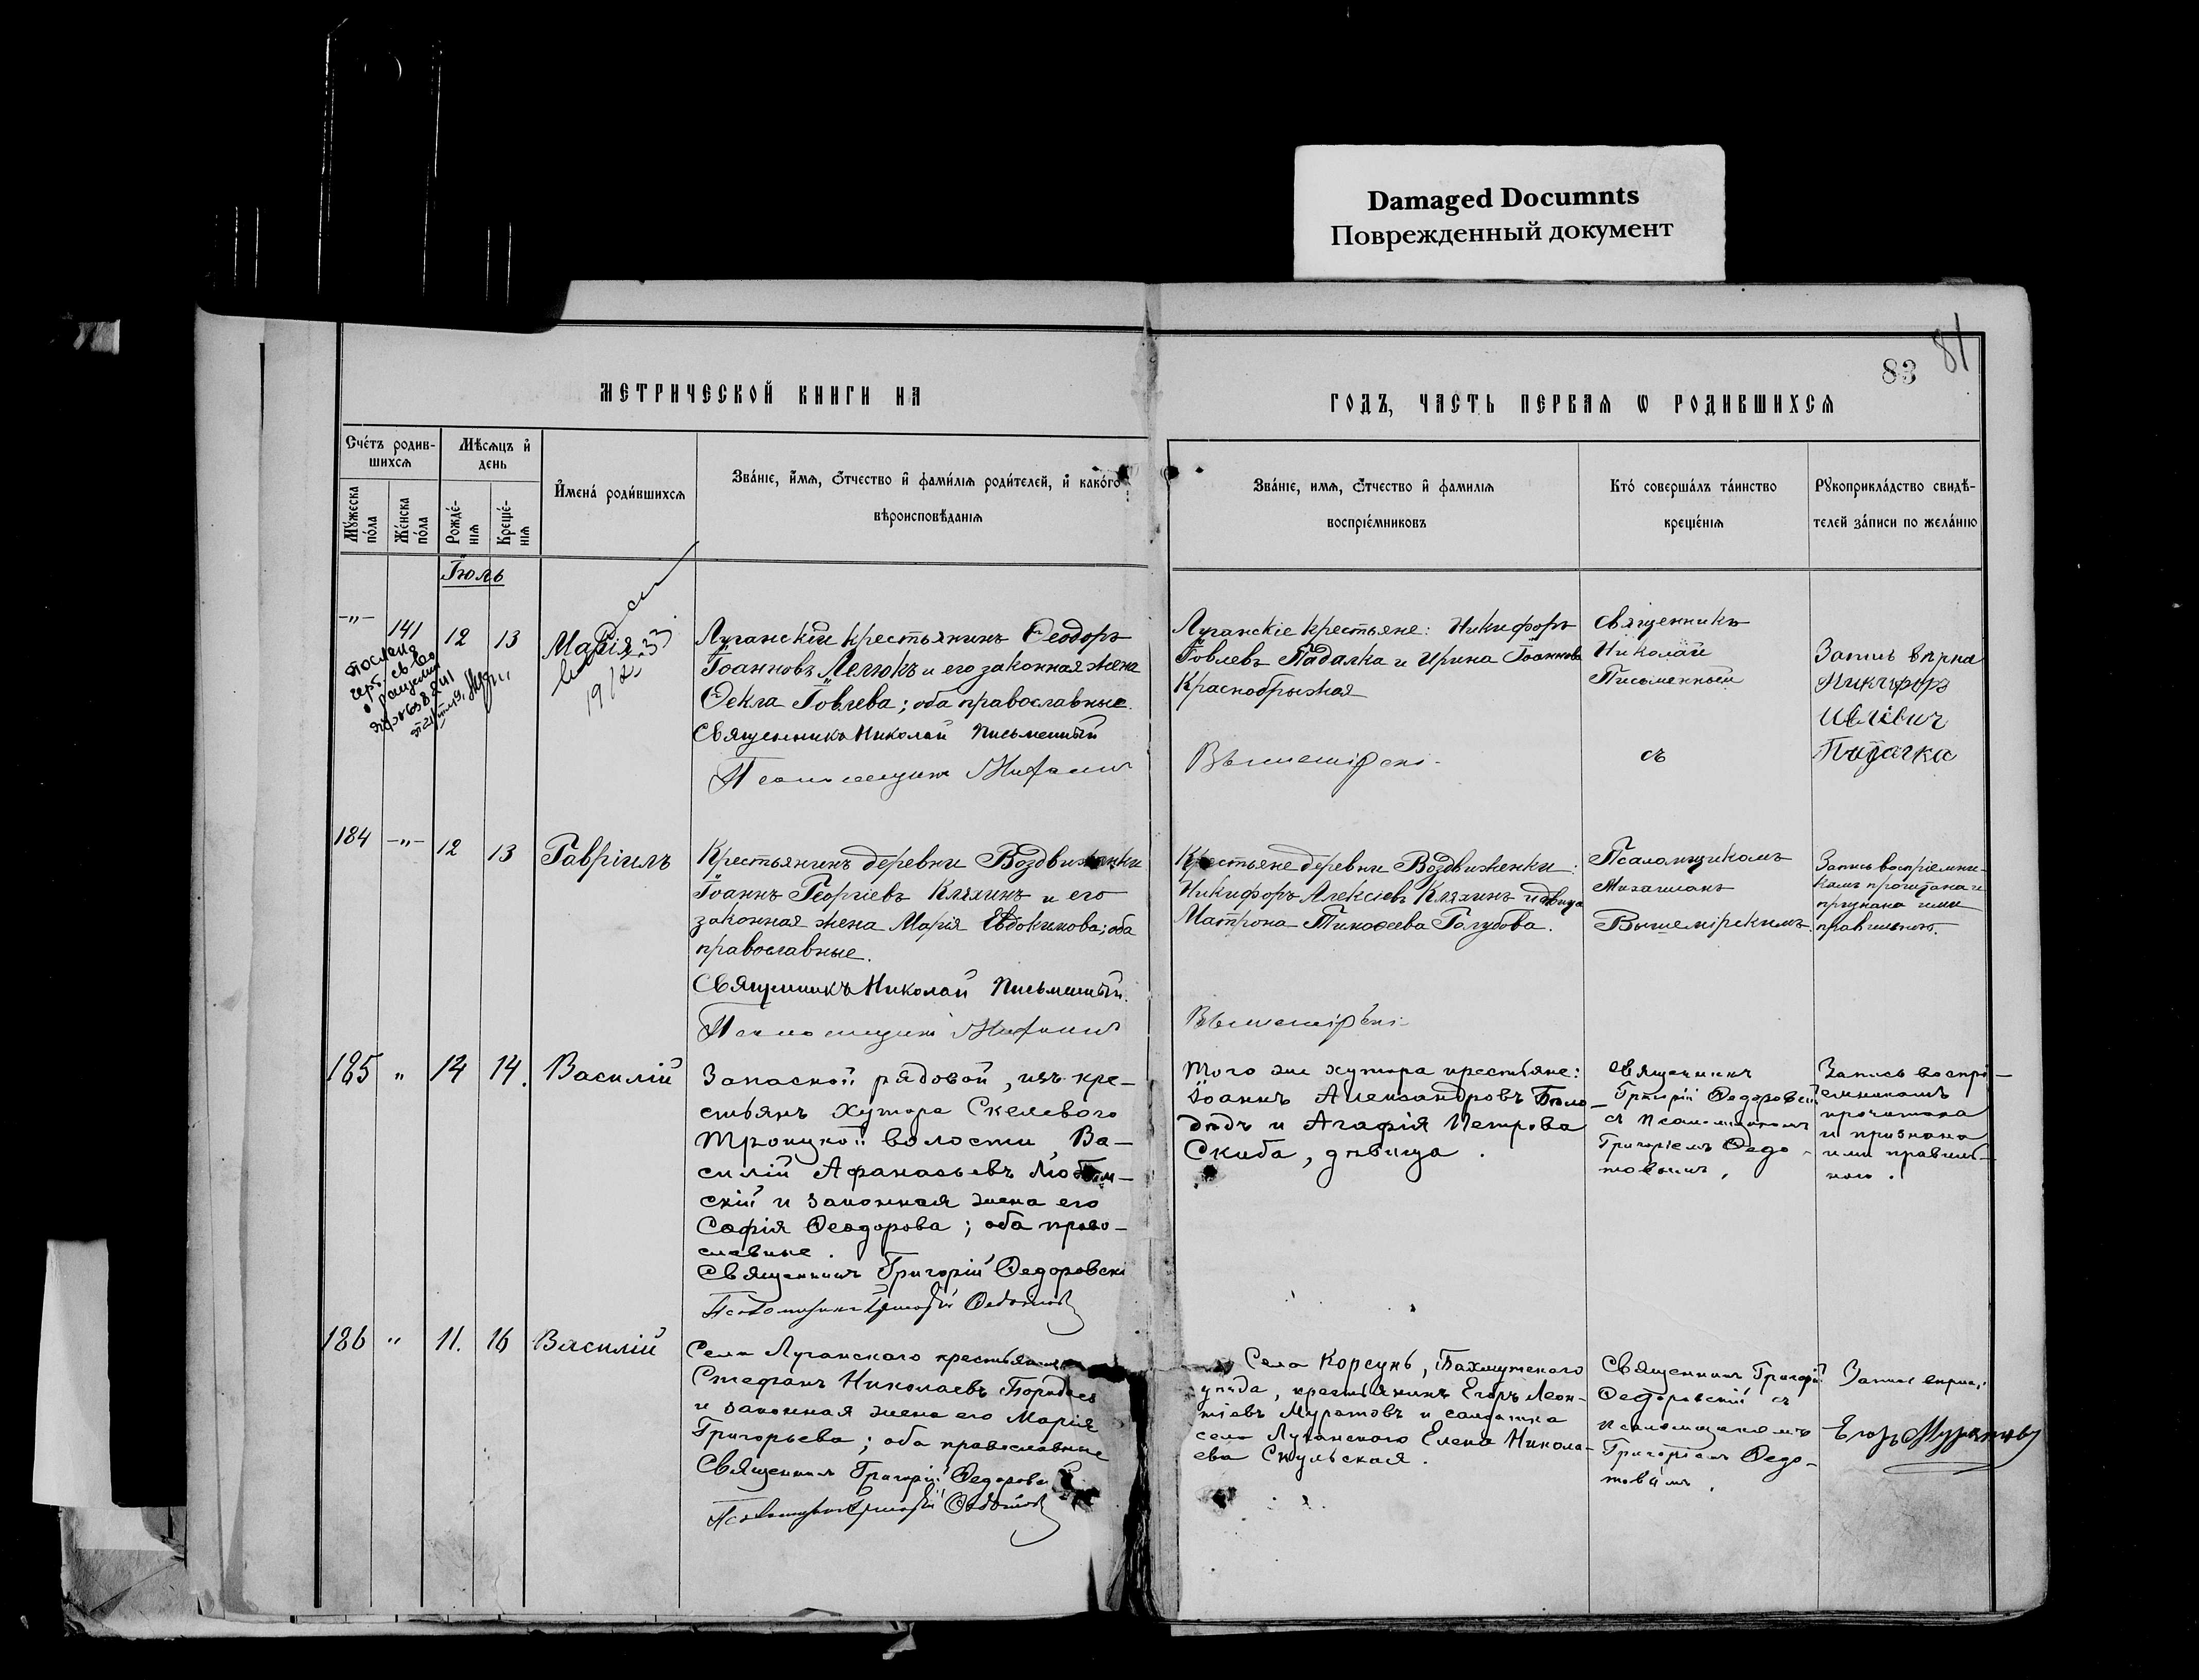 Damaged Documnts
Поврежденный документ
83 81
МЕТРИЧЕСКОЙ КНИГИ НА
ГОДЪ, ЧАСТЬ ПЕРВАЯ Ѡ РОДИВШИХСЯ
Счётъ родив-
шихся
Мѣсяцъ и
день
Мужеска
пола
Женска
пола
Рожде-
нія
Креще-
нія
Имена родившихся
Званіе, имя, отчество и фамилія родителей, и какого
вѣроисповѣданія
Званіе, имя, отчество и фамилія
воспріемниковъ
Кто совершалъ таинство
крещенія
Рукоприкладство свидѣ-
телей записи по желанію
Іюль
-"- 141 12 13 Марія
Луганскій крестьянинъ Ѳеодоръ
Іоанновъ Лелюкъ и его законная жена
Ѳекла Іовлева; оба православные.
Священникъ Николай Письменный
Луганскіе крестьяне: Никифоръ
Іовлевъ Падалка и Ирина Іоаннова
Краснобрыжая
Священникъ
Николай
Письменный
съ
Запись вѣрна
Никифоръ
184 -"- 12 13 Гавріилъ
Крестьянинъ деревни Воздвиженки
Іоаннъ Георгіевъ Кляхинъ и его
законная жена Марія Евдокимова; оба
православные.
Священникъ Николай Письменный.
Крестьяне деревни Воздвиженки:
Никифоръ Алексіевъ Кляхинъ и двица
Матрона Тимоѳеева Голубова.
Псаломщикомъ
Михаиломъ
Вышемірскимъ.
Запись воспріемни-
камъ прочитана и
признана ими
правильною.
185 " 14 14. Василій
Запасной рядовой, изъ кре-
стьянъ хутора Скелевого
Троицкой волости, Ва-
силій Афанасьевъ
скій и законная жена его
Софія Ѳеодорова; оба право-
славные.
Священникъ Григорій Ѳедоровскі
Того же хутора крестьяне:
Іоаннъ Александровъ Бѣло-
дѣдъ и Агафія Петрова
Скиба, дѣвица.
Священникъ
Григорій Ѳедоровскій
съ псаломщикомъ
Григоріемъ Ѳедо-
товымъ.
Запись воспрі-
емникамъ
прочитана
и признана
ими правиль-
ною.
186 " 11. 16 Василій
Села Луганскаго крестьянинъ
Стефанъ Николаевъ
и законная жена его Марія
Григорьева; оба православные
Священникъ Григорій Ѳедоровск
Села Корсунь, Бахмутскаго
уѣзда, крестьянинъ Егоръ Леон-
тіевъ Муратовъ и солдатка
села Луганскаго Елена Никола-
ева Скульская.
Священникъ Григорій
Ѳедоровскій съ
псаломщикомъ
Григоріемъ Ѳедо-
товымъ.
Запись вѣрна:
Егоръ Муратовъ